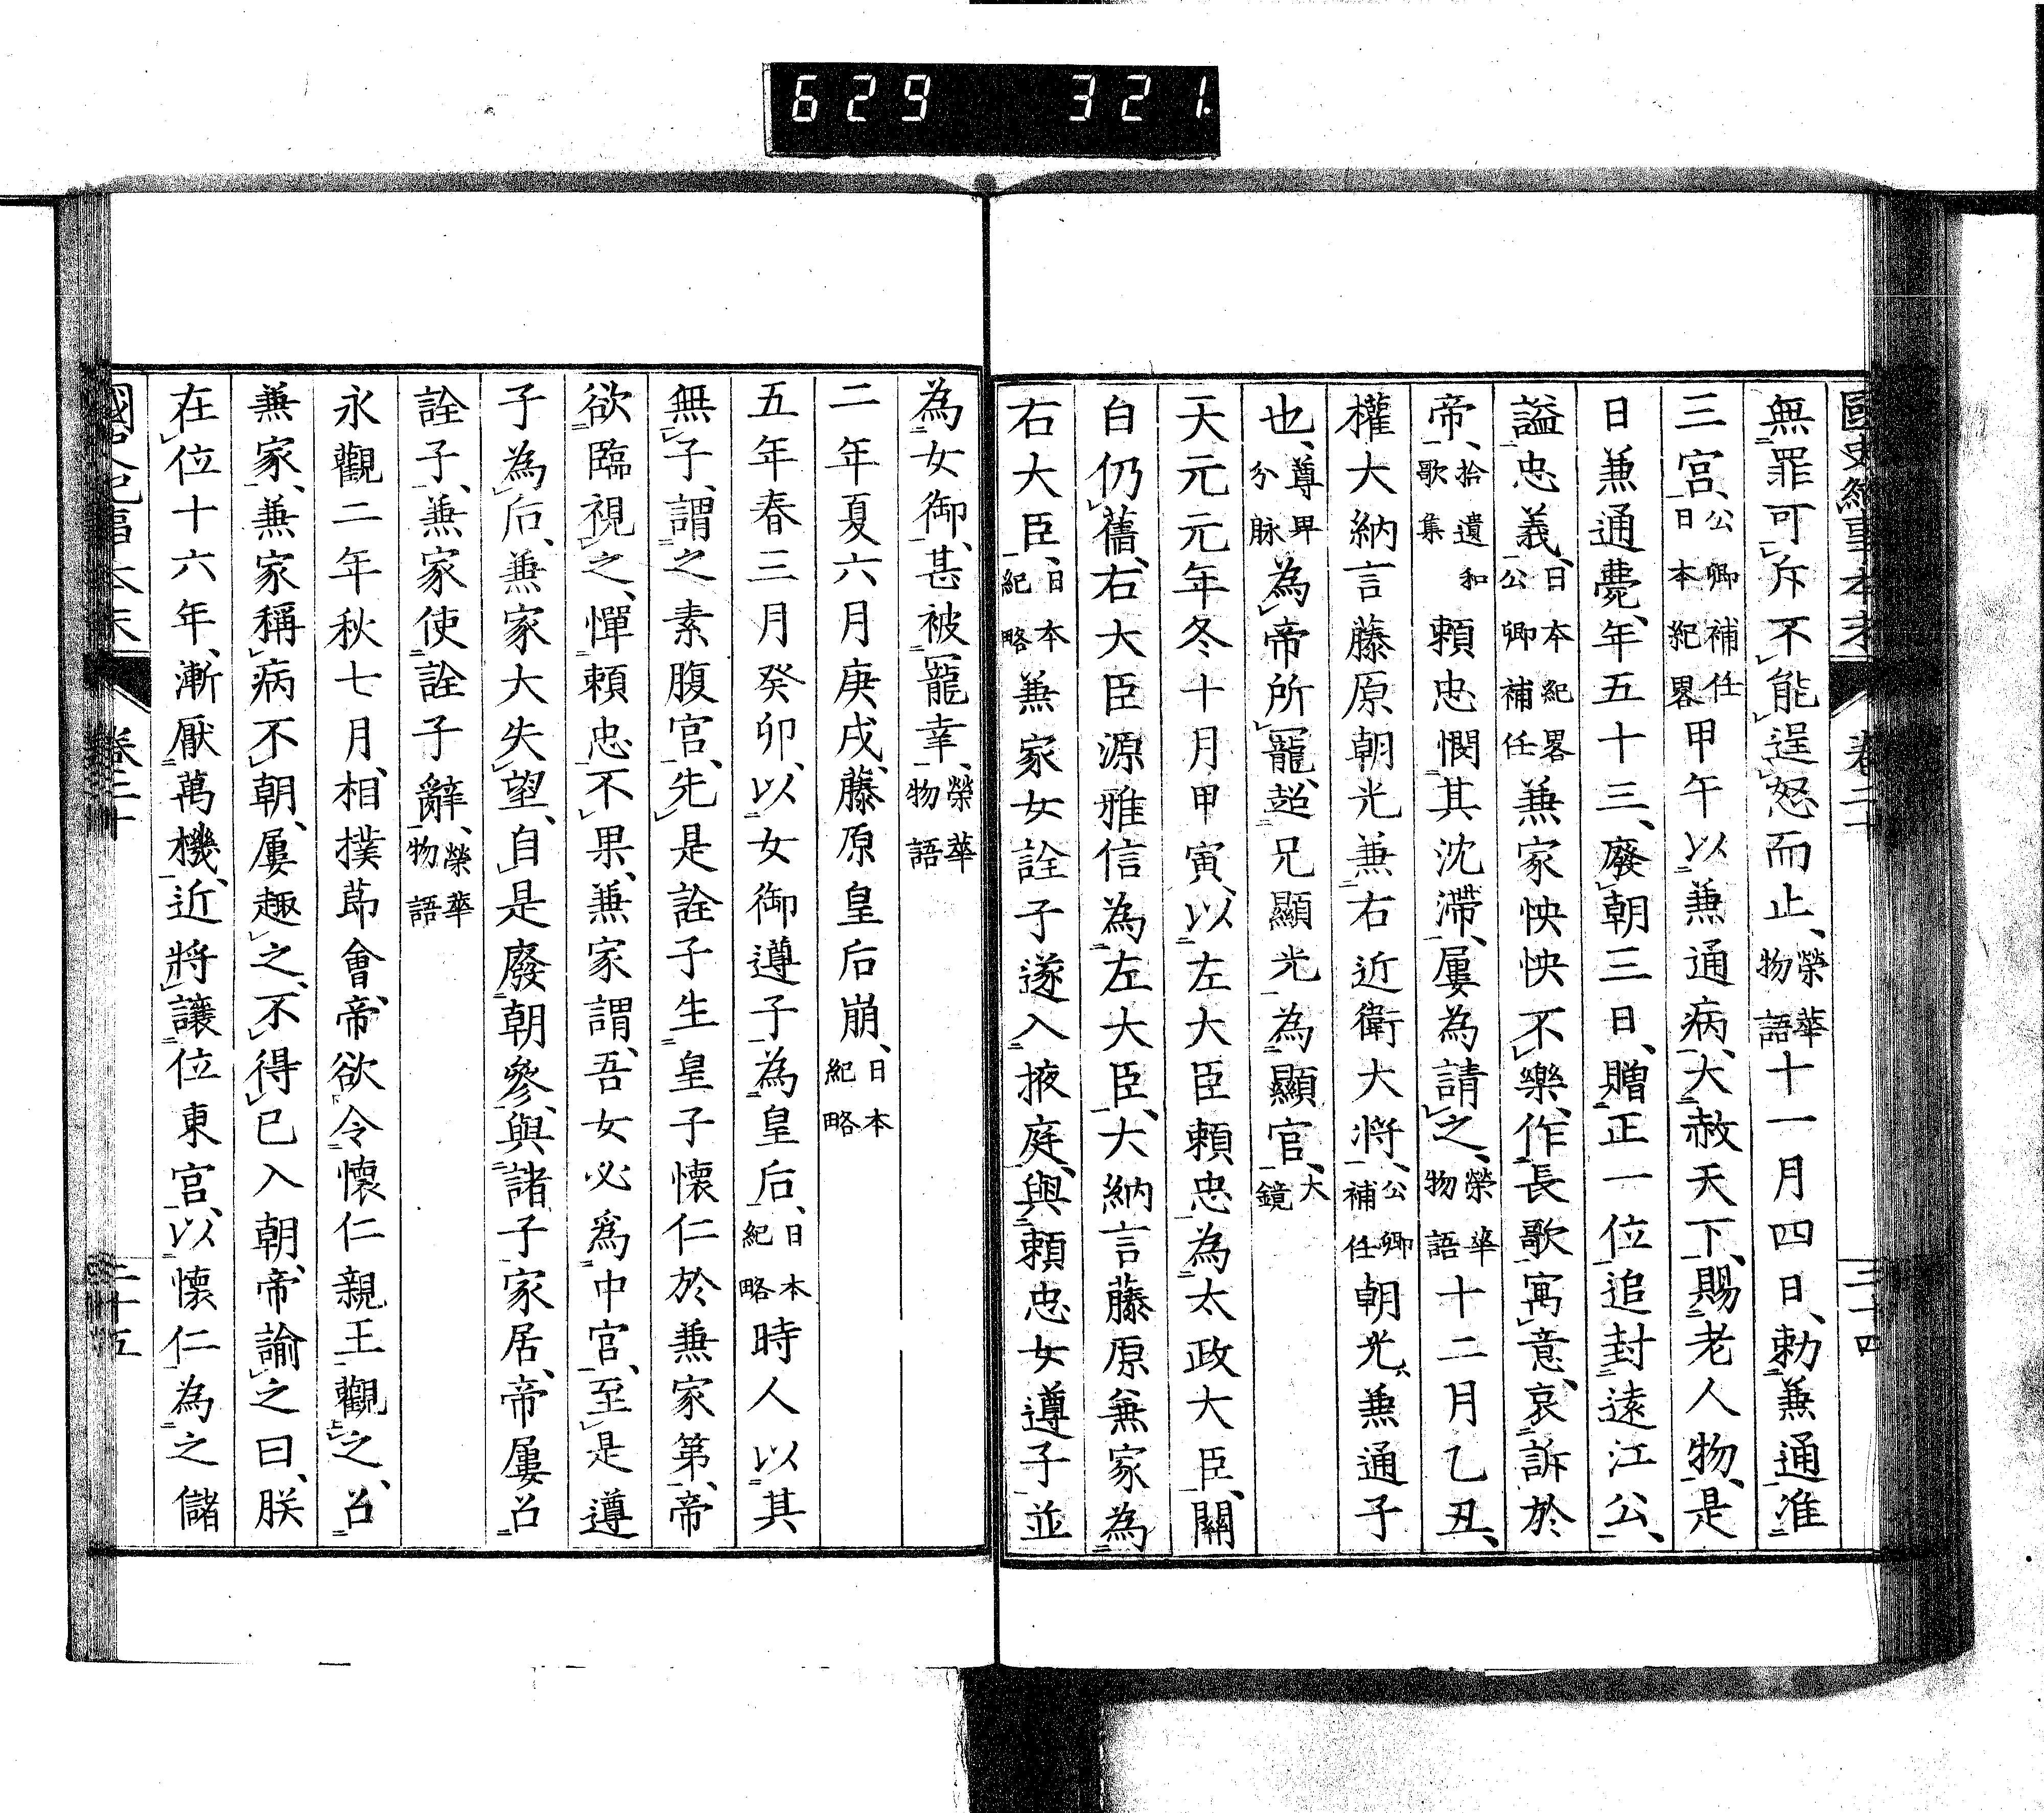 629 321
國史紀事本末 卷二十 三十四
無罪可斥不能逞怒而止、榮華物語十一月四日、勅兼通准
三宮、公卿補任日本紀畧甲午以兼通病、大赦天下、賜老人物、是
日兼通薨、年五十三、廢朝三日、贈正一位追封遠江公、
謚忠義、日本紀畧公卿補任兼家怏怏不樂、作長歌寓意、哀訴於
帝、拾遺和歌集頼忠憫其沈滯、屢為請之、榮華物語十二月乙丑、
權大納言藤原朝光兼右近衛大將、公卿補任朝光、兼通子
也、尊卑分脉為帝所寵、超兄顯光為顯官、大鏡
天元元年冬十月甲寅、以左大臣頼忠為太政大臣、關
白仍舊、右大臣源雅信為左大臣、大納言藤原兼家為
右大臣、日本紀略兼家女詮子遂入掖庭、與頼忠女遵子並
為女御、甚被寵幸、榮華物語
二年夏六月庚戌、藤原皇后崩、日本紀略
五年春三月癸卯、以女御遵子為皇后、日本紀略時人以其
無子、謂之素腹官、先是詮子生皇子懷仁於兼家第、帝
欲臨視之、憚頼忠不果、兼家謂、吾女必爲中宮、至是遵
子為后、兼家大失望、自是廢朝參、與諸子家居、帝屢召
詮子、兼家使詮子辭、榮華物語
永觀二年秋七月、相撲節會、帝欲令懷仁親王觀之、召
兼家、兼家稱病不朝、屢趣之、不得已入朝、帝諭之曰、朕
在位十六年、漸厭萬機、近將讓位東宮、以懷仁為之儲
國史紀事本末 卷二十 三十五